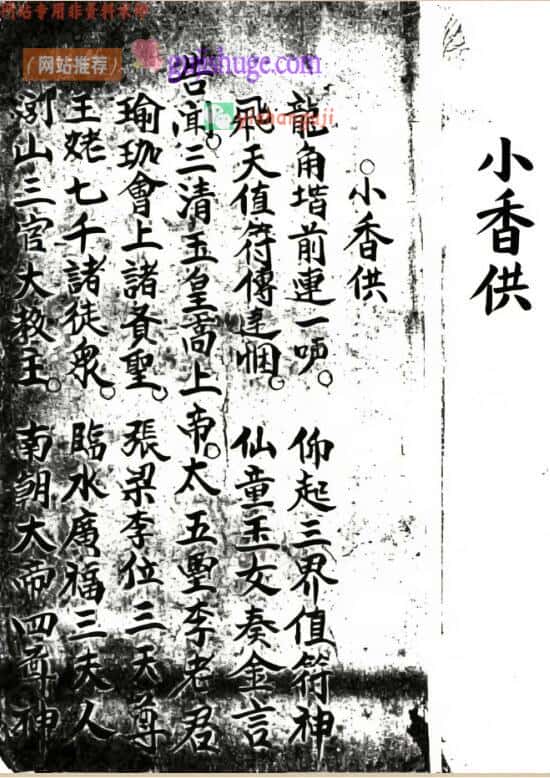 网站专用非资料水印
（网站推荐）
gujishuge.com
小香供
○小香供
龍角堦前連一哱。 仰起三界值符神
飛天值符傳達悃。 仙童玉女奏金言
聞。三清玉皇高上帝。太五李老君
瑜珈會上諸聖。 張梁李位三天尊
王姥七千諸徒衆。 臨水廣福三夫人
山三官大教主。 南朝大帝四尊神